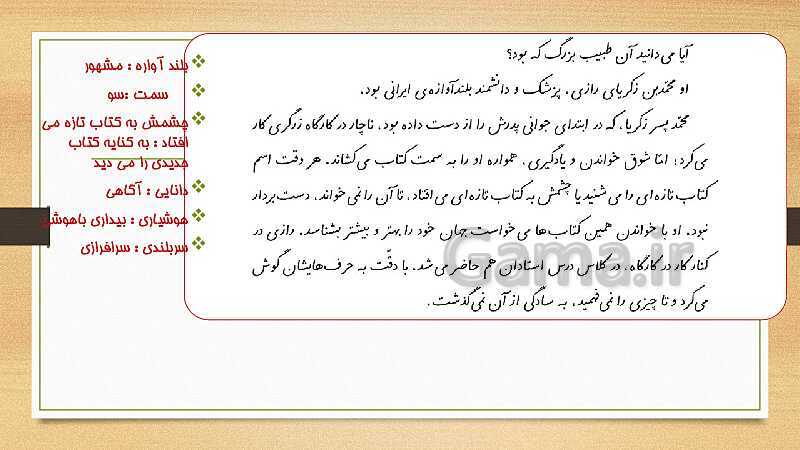 آیا می‌دانید آن طبیب بزرگ که بود؟
او محمّدبن زکریای رازی، پزشک و دانشمند بلندآوازه‌ی ایرانی بود.
محمّد پسر زکریا، که در ابتدای جوانی پدرش را از دست داده بود، ناچار در کارگاه زرگری کار
می‌کرد؛ امّا شوق خواندن و یادگیری، همواره او را به سمت کتاب می‌کشاند. هر وقت اسم
کتاب تازه‌ای را می‌شنید یا چشمش به کتاب تازه‌ای می‌افتاد، تا آن را نمی‌خواند، دست‌بردار
نبود. او با خواندن همین کتاب‌ها می‌خواست جهان خود را بهتر و بیشتر بشناسد. رازی در
کنار کار در کارگاه، در کلاس درس استادان هم حاضر می‌شد. با دقّت به حرف‌هایشان گوش
می‌کرد و تا چیزی را نمی‌فهمید، به سادگی از آن نمی‌گذشت.
بلند آوازه : مشهور
سمت :سو
چشمش به کتاب تازه می
افتاد : به کنایه کتاب
جدیدی را می دید
دانایی : آگاهی
هوشیاری : بیداری باهوشی
سربلندی : سرافرازی
Gama.ir